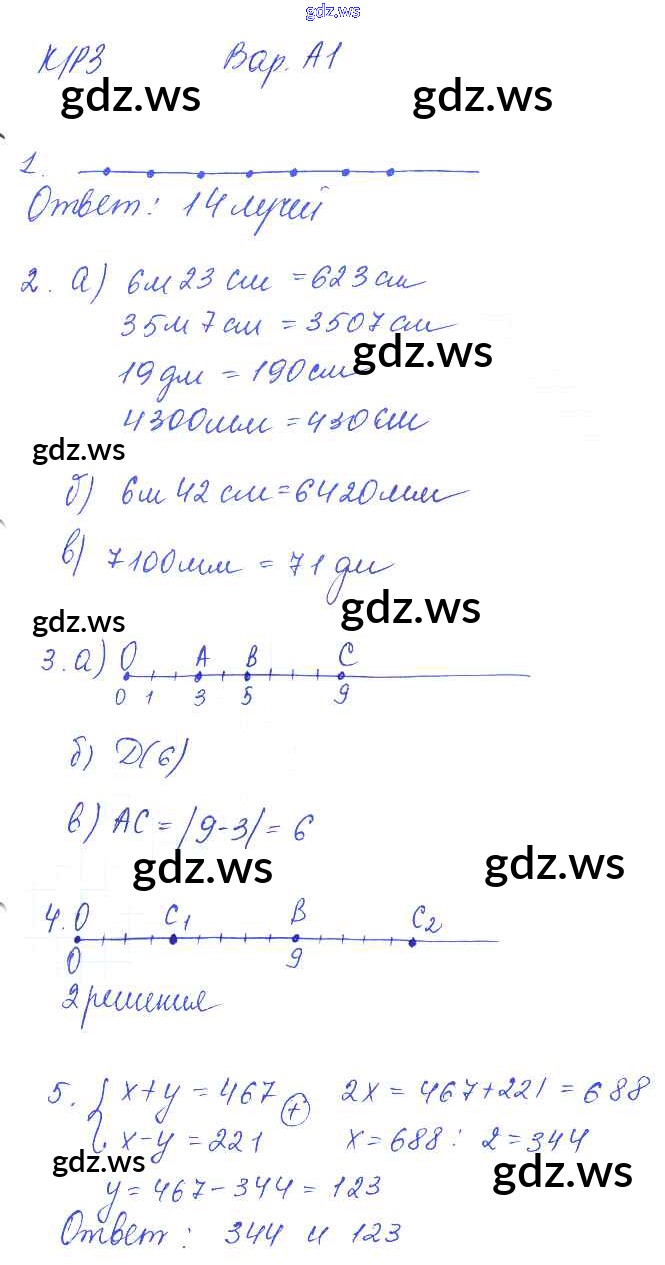 gdz.ws
К/Р3 Вар. А1
gdz.ws gdz.ws
1.
Ответ: 14 лучей
2. а) 6м 23 см = 623 см
35м 7 см = 3507 см
gdz.ws
19 дм = 190 см
4300мм = 430 см
gdz.ws
б) 6м 42 см = 6420мм
в) 7100мм = 71 дм
gdz.ws gdz.ws
3. а) O A B C
0 1 3 5 9
б) D(6)
в) AC = |9-3| = 6
gdz.ws gdz.ws
4. O C1 B C2
0 9
2 решения
5. { x+y = 467 (+) 2x = 467+221 = 688
x-y = 221 x = 688 : 2 = 344
gdz.ws gdz.ws
y = 467-344 = 123
Ответ: 344 и 123